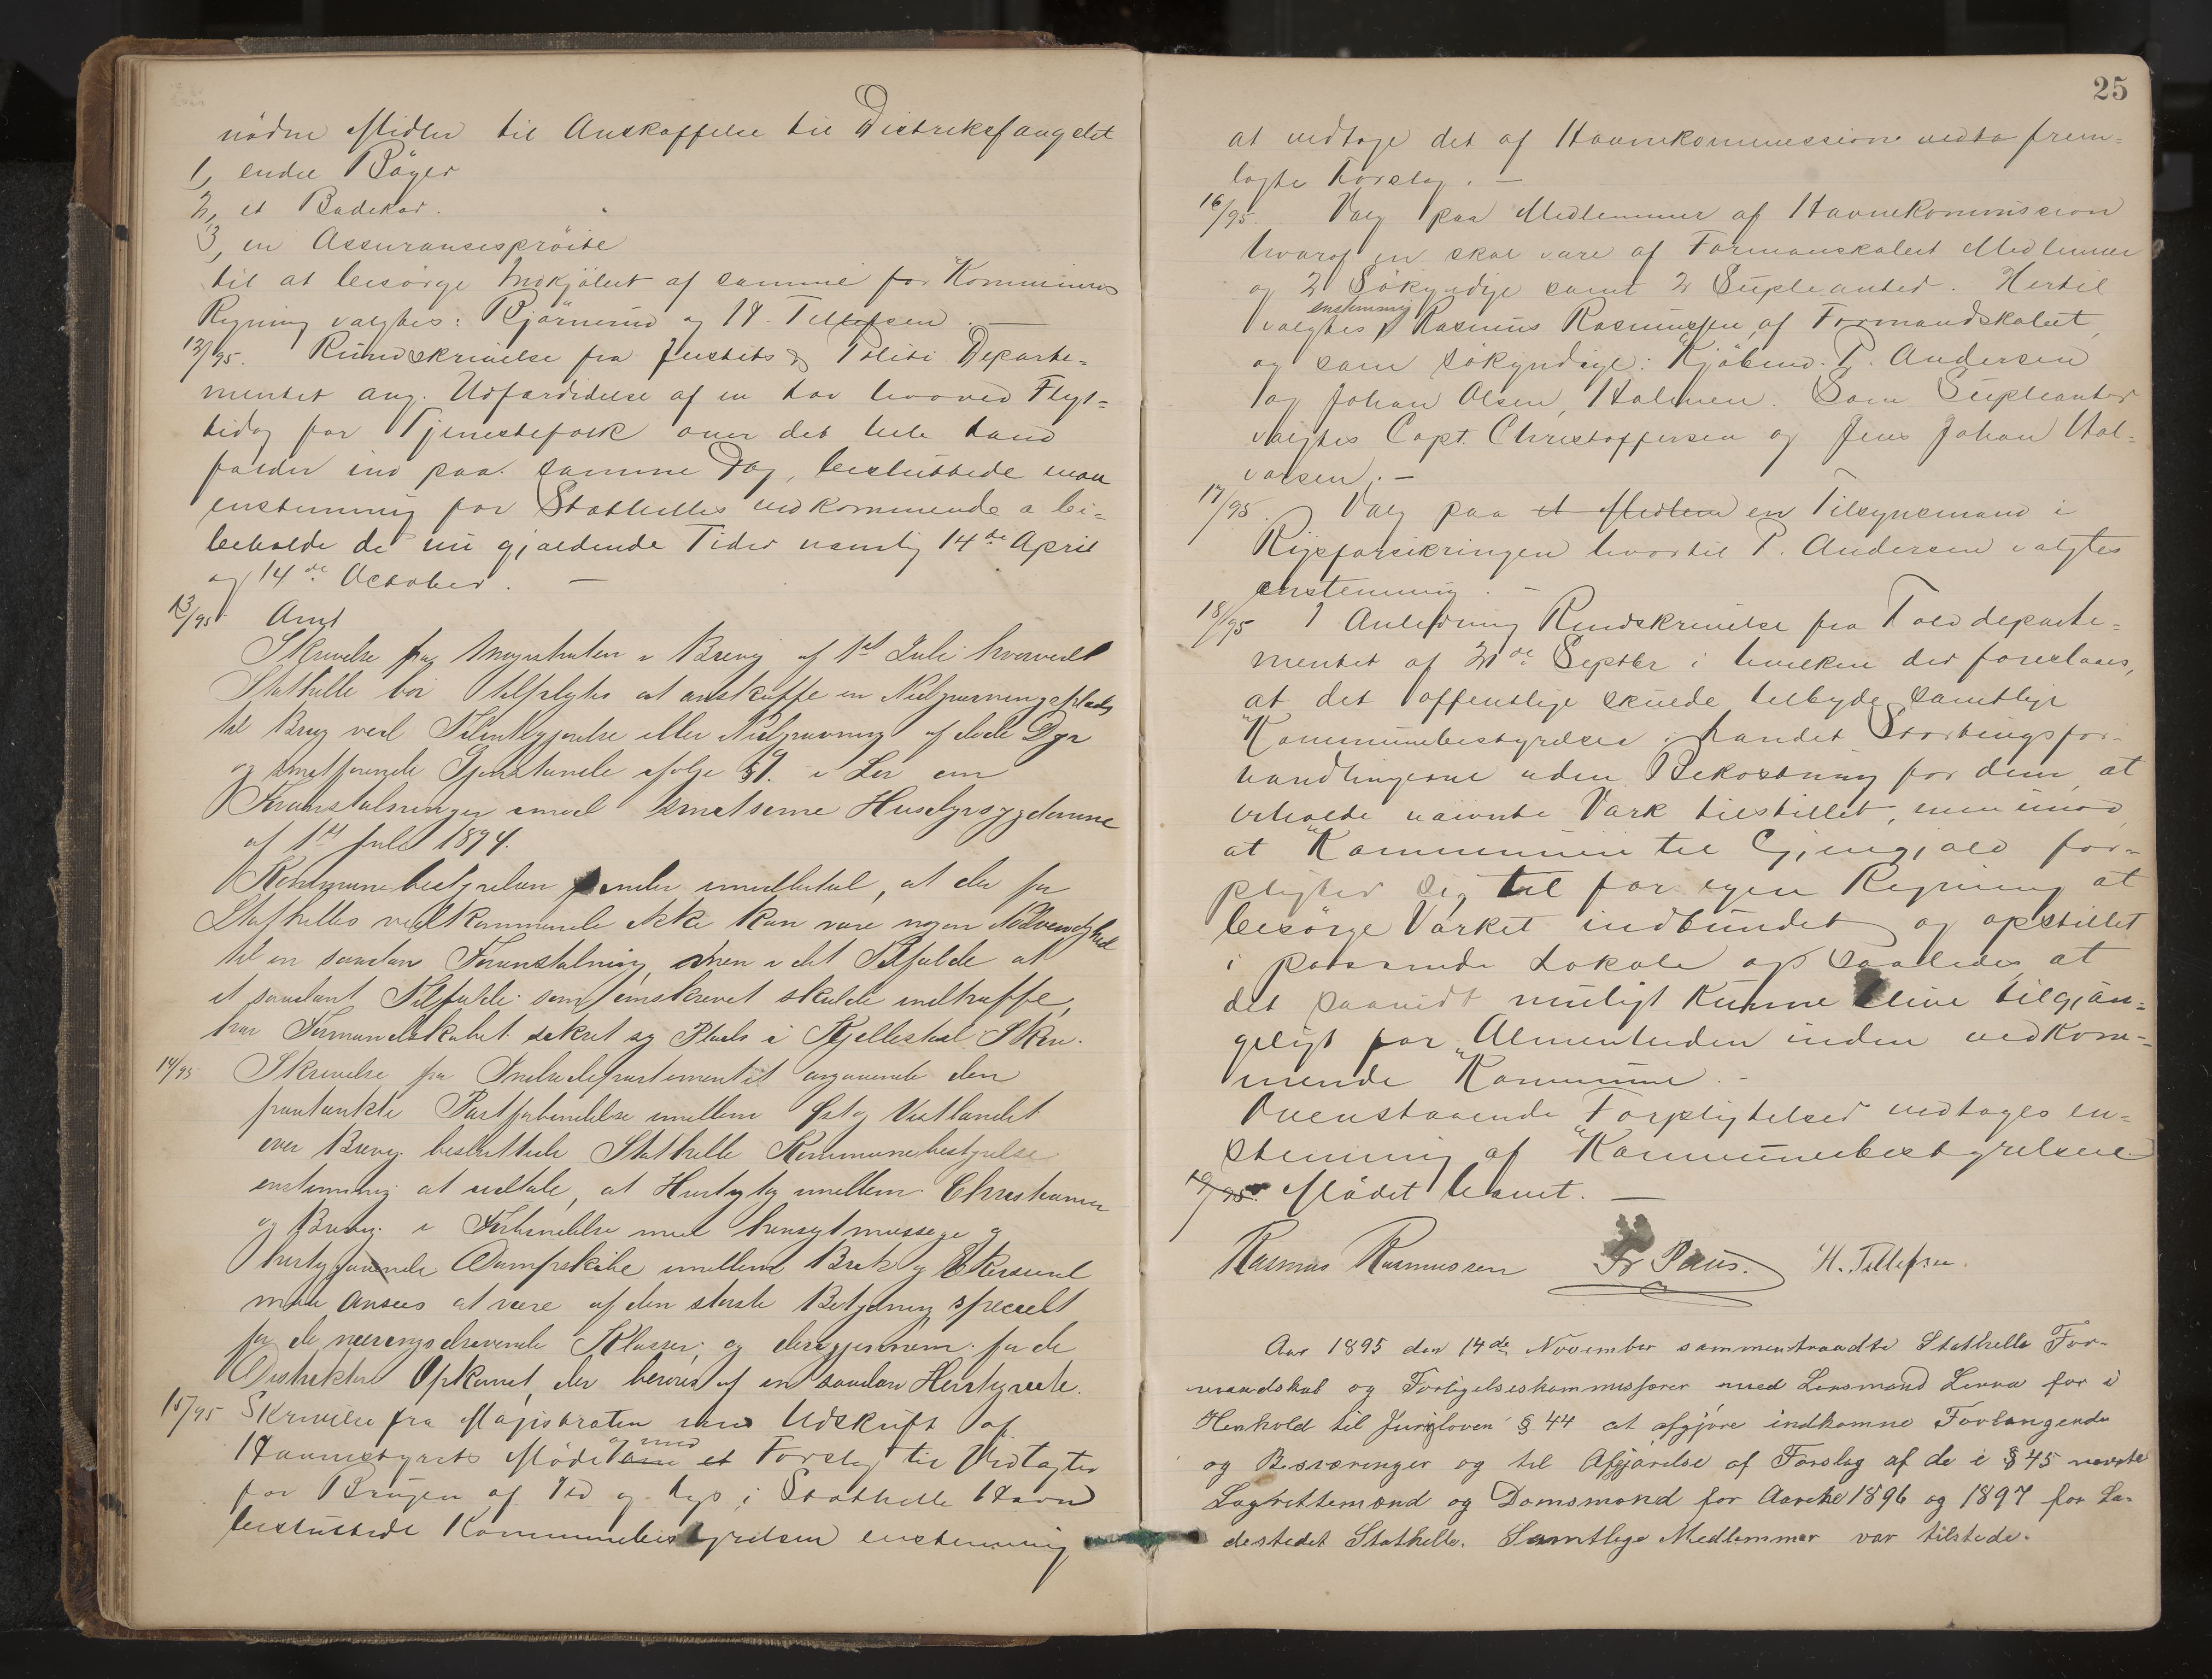 nödne Midler til Anskaffelse til Distriksfangslet
1, endel Böger
2, et Badekar.
3, en Assuransespröite
til at besörge Indkjöbet af samme for Kommunens
Regning valgtes: Björnerud og H. Tellefsen. —
12/95. Rundskrivelse fra Justits & Politi Departe=
mentet ang. Udfærdidelse af en Lov hvorved Flyt=
tidog for Tjenestefolk over det hele Land
falder ind paa samme Dag, besluttede man
enstemmig for Stathelles vedkommende a bi=
beholde de nu gjældende Tider namlig 14de April
og 14de October. —
13/95 Amt
Skrivelse fra Magistraten i Brevig af 1st Juli hvorved
Stathelle bör tilpligtes at anskaffe en Nedgravningsplads
til Brug ved Tilintetgjørelse eller Nedgravning af døde Dyr
og smitførende Gjenstande ifølge §9. i Lov om
Foranstaltninger imod smitsomme Husdyrsygdomme
af 1st Juli 1894.
Kommunebestyrelsen finder imidlertid, at der for
Stathelles vedkommende ikke kan være nogen Nödvendighed
til en saadan Foranstaltning, men i det Tilfælde at
et saadant Tilfælde som omskrevet skulde indtræffe,
har Formandskabet sikret sig Plads i Kjellestad Skov.
14/95 Skrivelse fra Indredepartementet angaaende den
paatænkte Postforbindelse imellem Öst og Vestlandet
over Brevig besluttede Stathelle Kommunebestyrelse
enstemmig at udtale, at Hurtigtog imellem Christiania
og Brevig i Forbindelse med hensigtmæssige og
hurtiggaaende Dampskibe imellem Brevik og Ekersund
maa ansees at være af den störste Betydning specielt
for de næringsdrivende Klasser, og derigjennem for de
Distrikters Opkomst, der beröres af en saadan Hurtigrute.
15/95 Skrivelse fra Magistraten med Udskrift af
Havnestyrets Möde og med et Forslag til Vedtagter
for Brugen af Ild og Lys i Stathelle Havn
besluttede Kommunebestyrelsen enstemmig
25
at vedtage det af Havnekommissionen vedta frem=
lagte Forslag. —
16/95. Valg paa Medlemmer af Havnekommission
hvoraf en skal være af Formanskabet Medlemmer
og 2 Sökyndige samt 2 Supleanter. Hertil
enstemmig
valgtes Rasmus Rasmussen af Formandskabet,
og som sökyndige: Kjöbmd. P. Andersen
og Johan Olsen, Holmen. Som Supleanter
valgtes Capt. Christoffersen og Jens Johan Hal=
vorsen. —
17/95. Valg paa et Medlem en Tilsynsmand i
Rigsforsikringen hvortil P. Andersen valgtes
enstemmig. —
18/95 I Anledning Rundskrivelse fra Tolddeparte=
mentet af 21de Septbr i hvilken der foreslaaes,
at det offentlige skulde tilbyde samtlige
Kommunebestyrelser i Landet Stortingsfor=
handlingerne uden Bekostning for dem, at
erholde nævnte Værk tilstillet, men imod
at Kommunen til Gjengjæld for=
pligter sig til for egen Regning at
besörge Værket indbundet og opstillet
i passende Lokale og saaledes at
det saavidt muligt kunne blive tilgjæn=
geligt for Almenheden inden vedkom=
mende Kommune. —
Ovenstaaende Forpligtelser vedtages en=
stemmig af Kommunebestyrelsen
19/95 Mödet hævet. —
Rasmus Rasmussen Fr Paus. H. Tellefsen.
Aar 1895 den 14de November sammentraadte Stathelle For-
mandskab og Forligelseskommissærer med Lensmand Lunna for i
Henhold til Juryloven § 44 at afgjöre indkomne Forlangende
og Besværinger og til Afgjörelse af Forslag af de i § 45 nævnte
Lagrettemænd og Domsmænd for Aarene 1896 og 1897 for La-
destedet Stathelle. Samtlige Medlemmer var tilstede.